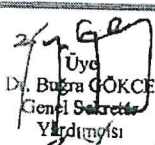 Üye
Dr. Buğra GÖKCE
Genel Sekreter
Yardımcısı